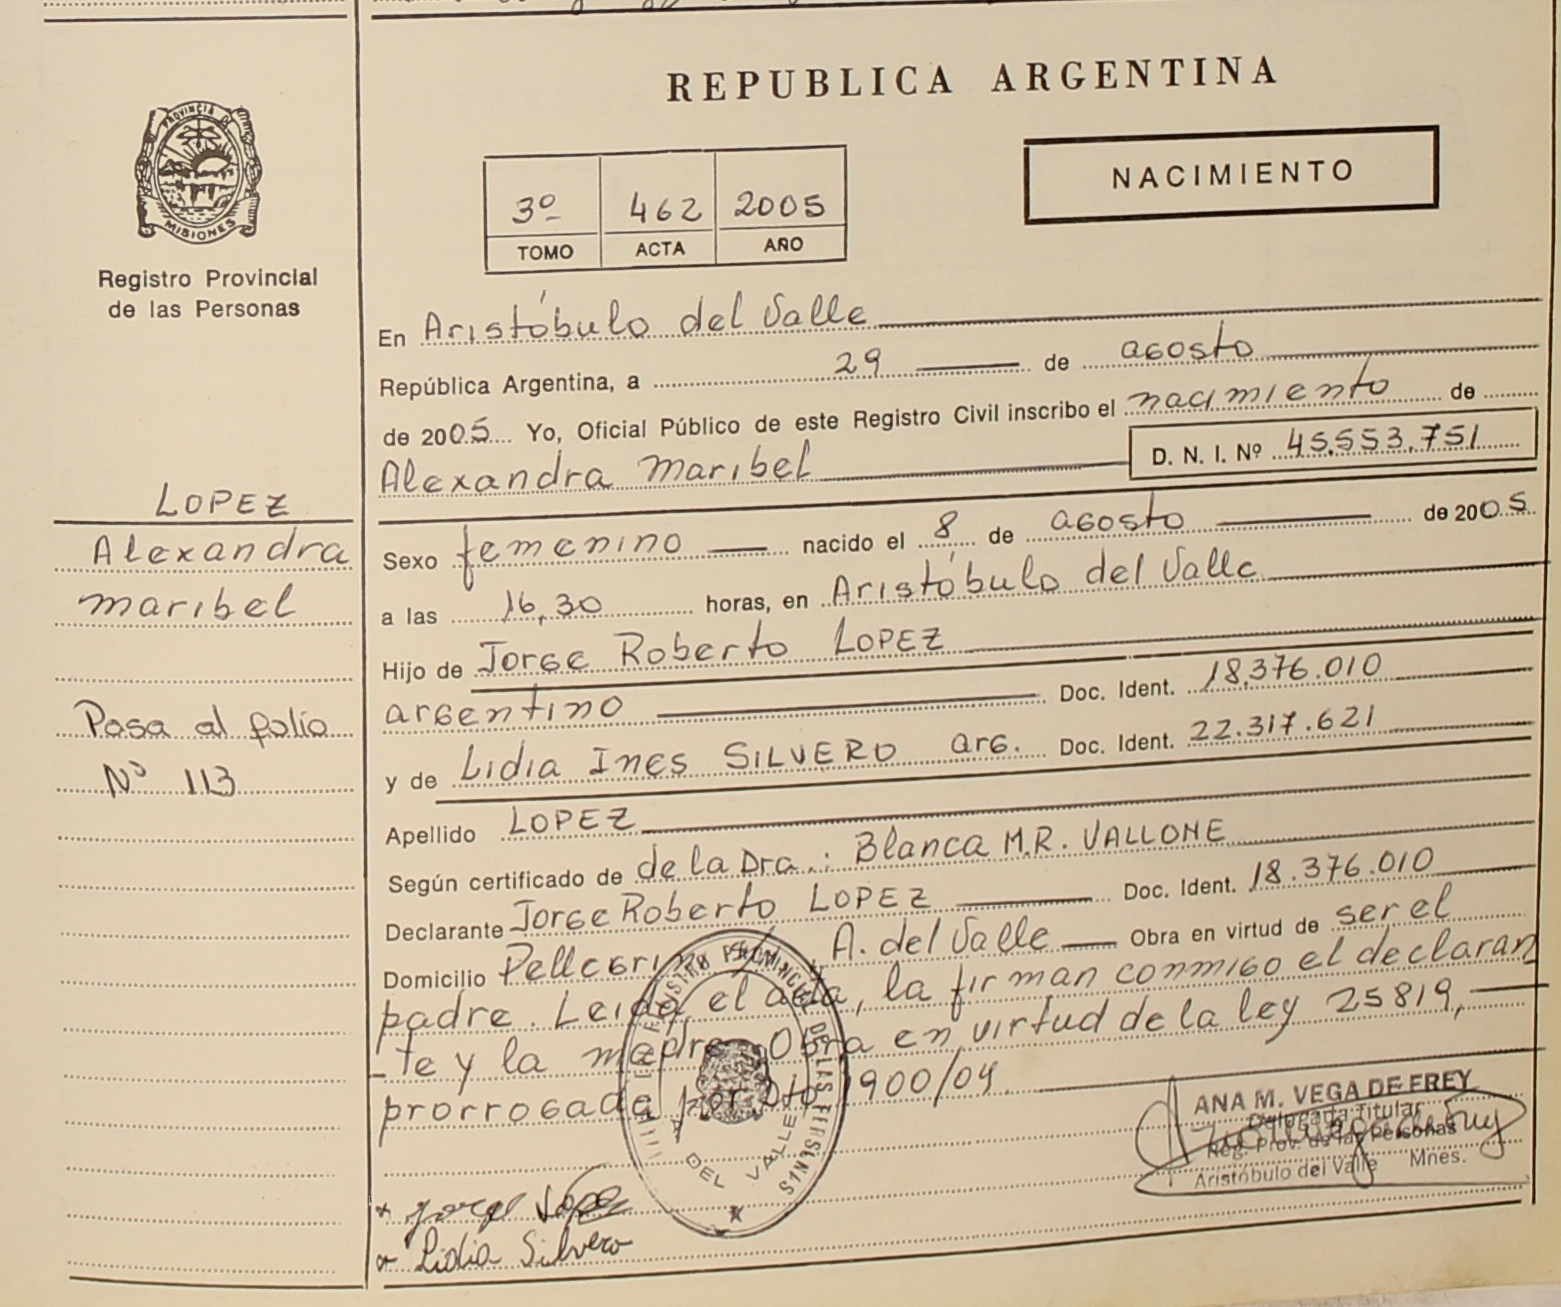 REPUBLICA ARGENTINA
PROVINCIA DE
MISIONES
Registro Provincial
de las Personas
NACIMIENTO
3º 462 2005
TOMO ACTA AÑO
En Aristóbulo del Valle
República Argentina, a 29 de agosto
de 2005 Yo, Oficial Público de este Registro Civil inscribo el nacimiento de
Alexandra Maribel D. N. I. Nº 45.553.751
LOPEZ
Alexandra
Maribel
Pasa al folio
Nº 113
Sexo femenino nacido el 8 de agosto de 2005
a las 16,30 horas, en Aristóbulo del Valle
Hijo de Jorge Roberto LOPEZ
argentino Doc. Ident. 18.376.010
y de Lidia Ines SILVERO arg. Doc. Ident. 22.317.621
Apellido LOPEZ
Según certificado de de la Dra.: Blanca M.R. VALLONE
Declarante Jorge Roberto LOPEZ Doc. Ident. 18.376.010
Domicilio Pellegrini S/ A. del Valle Obra en virtud de ser el
padre. Leida el acta, la firman conmigo el declaran
te y la madre. Obra en virtud de la ley 25819,
prorrogada por Dto 1900/04.
REGISTRO PROVINCIAL DE LAS PERSONAS
A. DEL VALLE
ANA M. VEGA DE FREY
Delegada Titular
Reg. Prov. de las Personas
Aristóbulo del Valle Mnes.
x Jorge Lopez
x Lidia Silvero